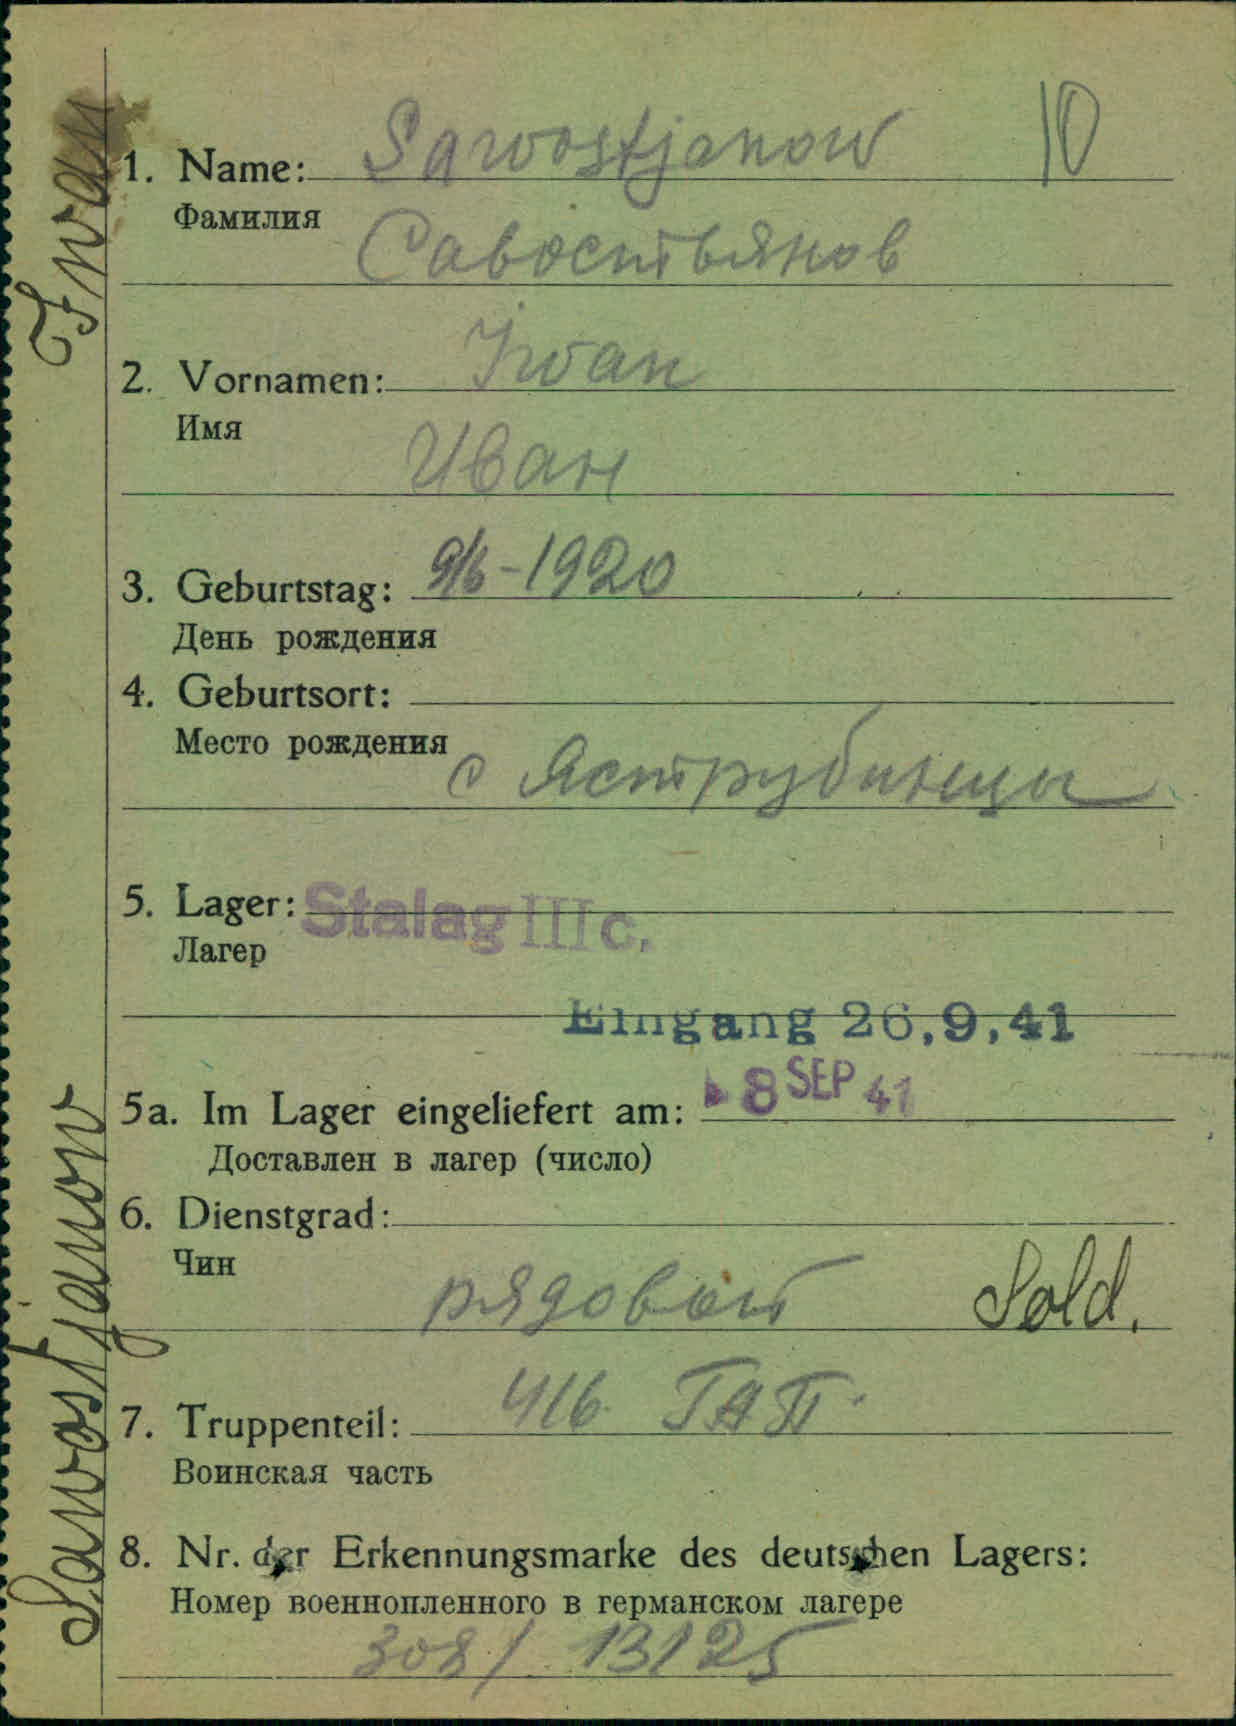 10
1. Name: Sawostjanow
Фамилия
Савостьянов
2. Vornamen: Iwan
Имя
Иван
3. Geburtstag: 9/6-1920
День рождения
4. Geburtsort:
Место рождения
с Яструбинцы
5. Lager: Stalag III c.
Лагер
Eingang 26.9.41
5a. Im Lager eingeliefert am: 8 SEP 41
Доставлен в лагер (число)
6. Dienstgrad:
Чин
рядовой Sold.
7. Truppenteil: 416 ГАП
Воинская часть
8. Nr. der Erkennungsmarke des deutschen Lagers:
Номер военнопленного в германском лагере
308/ 13125
Sawostjanow Iwan